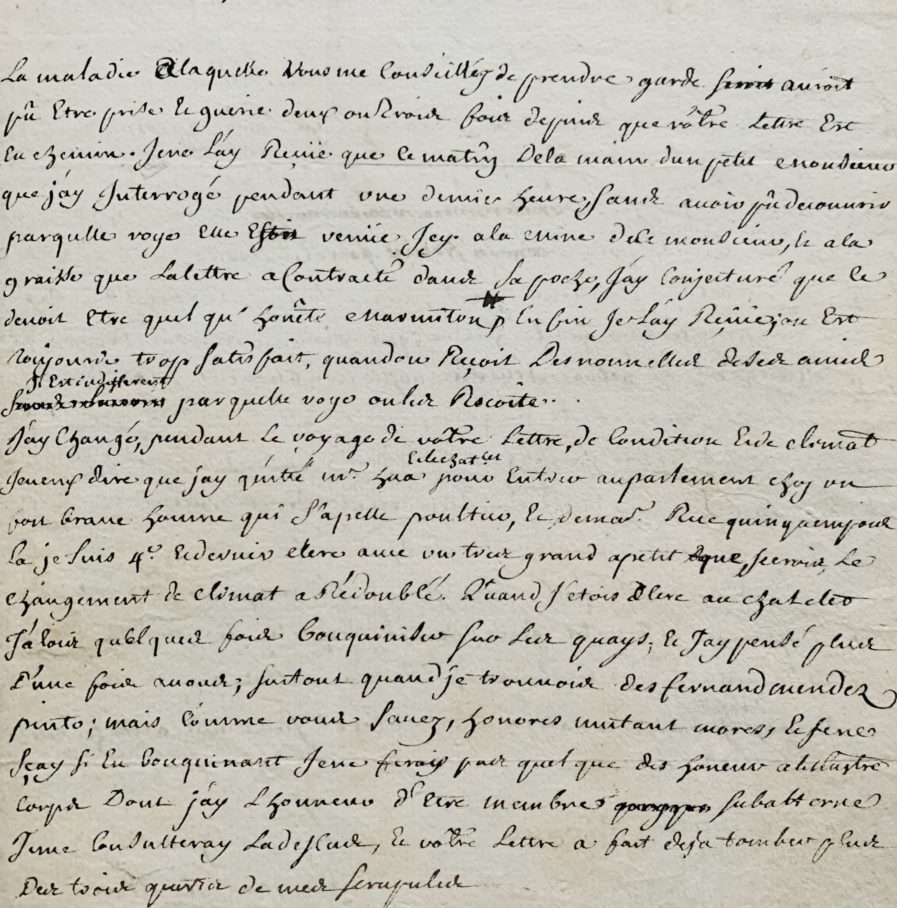 La maladie a laquelle vous me Conseillés de prendre garde auroit
pû Etre prise Et guerie deux ou trois fois depuis que vôtre Lettre Est
En chemin. Je ne L'ay Reçüe que ce matin De la main d'un petit monsieur
que j'ay Interrogé pendant une demie heure, sans avoir pû decouvrir
par quelle voye Elle Estoit venüe Icy. a la mine de ce monsieur, Et a la
graisse que La lettre a Contracté dans sa poche, J'ay Conjecturé que ce
devoit Etre quelqu' honête marmiton, Enfin Je L'ay Reçüe, on Est
toujours trop satisfait, quand on Reçoit Des nouvelles de ses amis
Il Est indifferent
par quelle voye on les Reçoive.
J'ay Changé, pendant Le voyage de vôtre Lettre, de Condition Et de climat
Je veux dire que j'ay quitté mr. hua pour Entrer au parlement chez un
Et le chatlet
fort brave homme qui s'apelle poultier, Et demeur. Rue quinquempois
La je suis 4e. Et dernier clerc avec un tres grand apetit que, je crois, Le
changement de climat a Rédoublé. Quand J'etois Clerc au chatelet
J'alois quelques fois bouquiniser sur Les quays; Et J'ay pensé plus
D'une fois a vous; surtout quand je trouvois des fernand mendez
pinto; mais Comme vous savez, honores mutant mores, Et je ne
sçay si En bouquinant Je ne ferois pas quelque des honeur a l'illustre
Corps Dont j'ay L'honneur d'Etre membre subalterne
Je me Consulteray La dessus, Et vôtre Lettre a fait deja tomber plus
Des trois quarts de mes scrupules